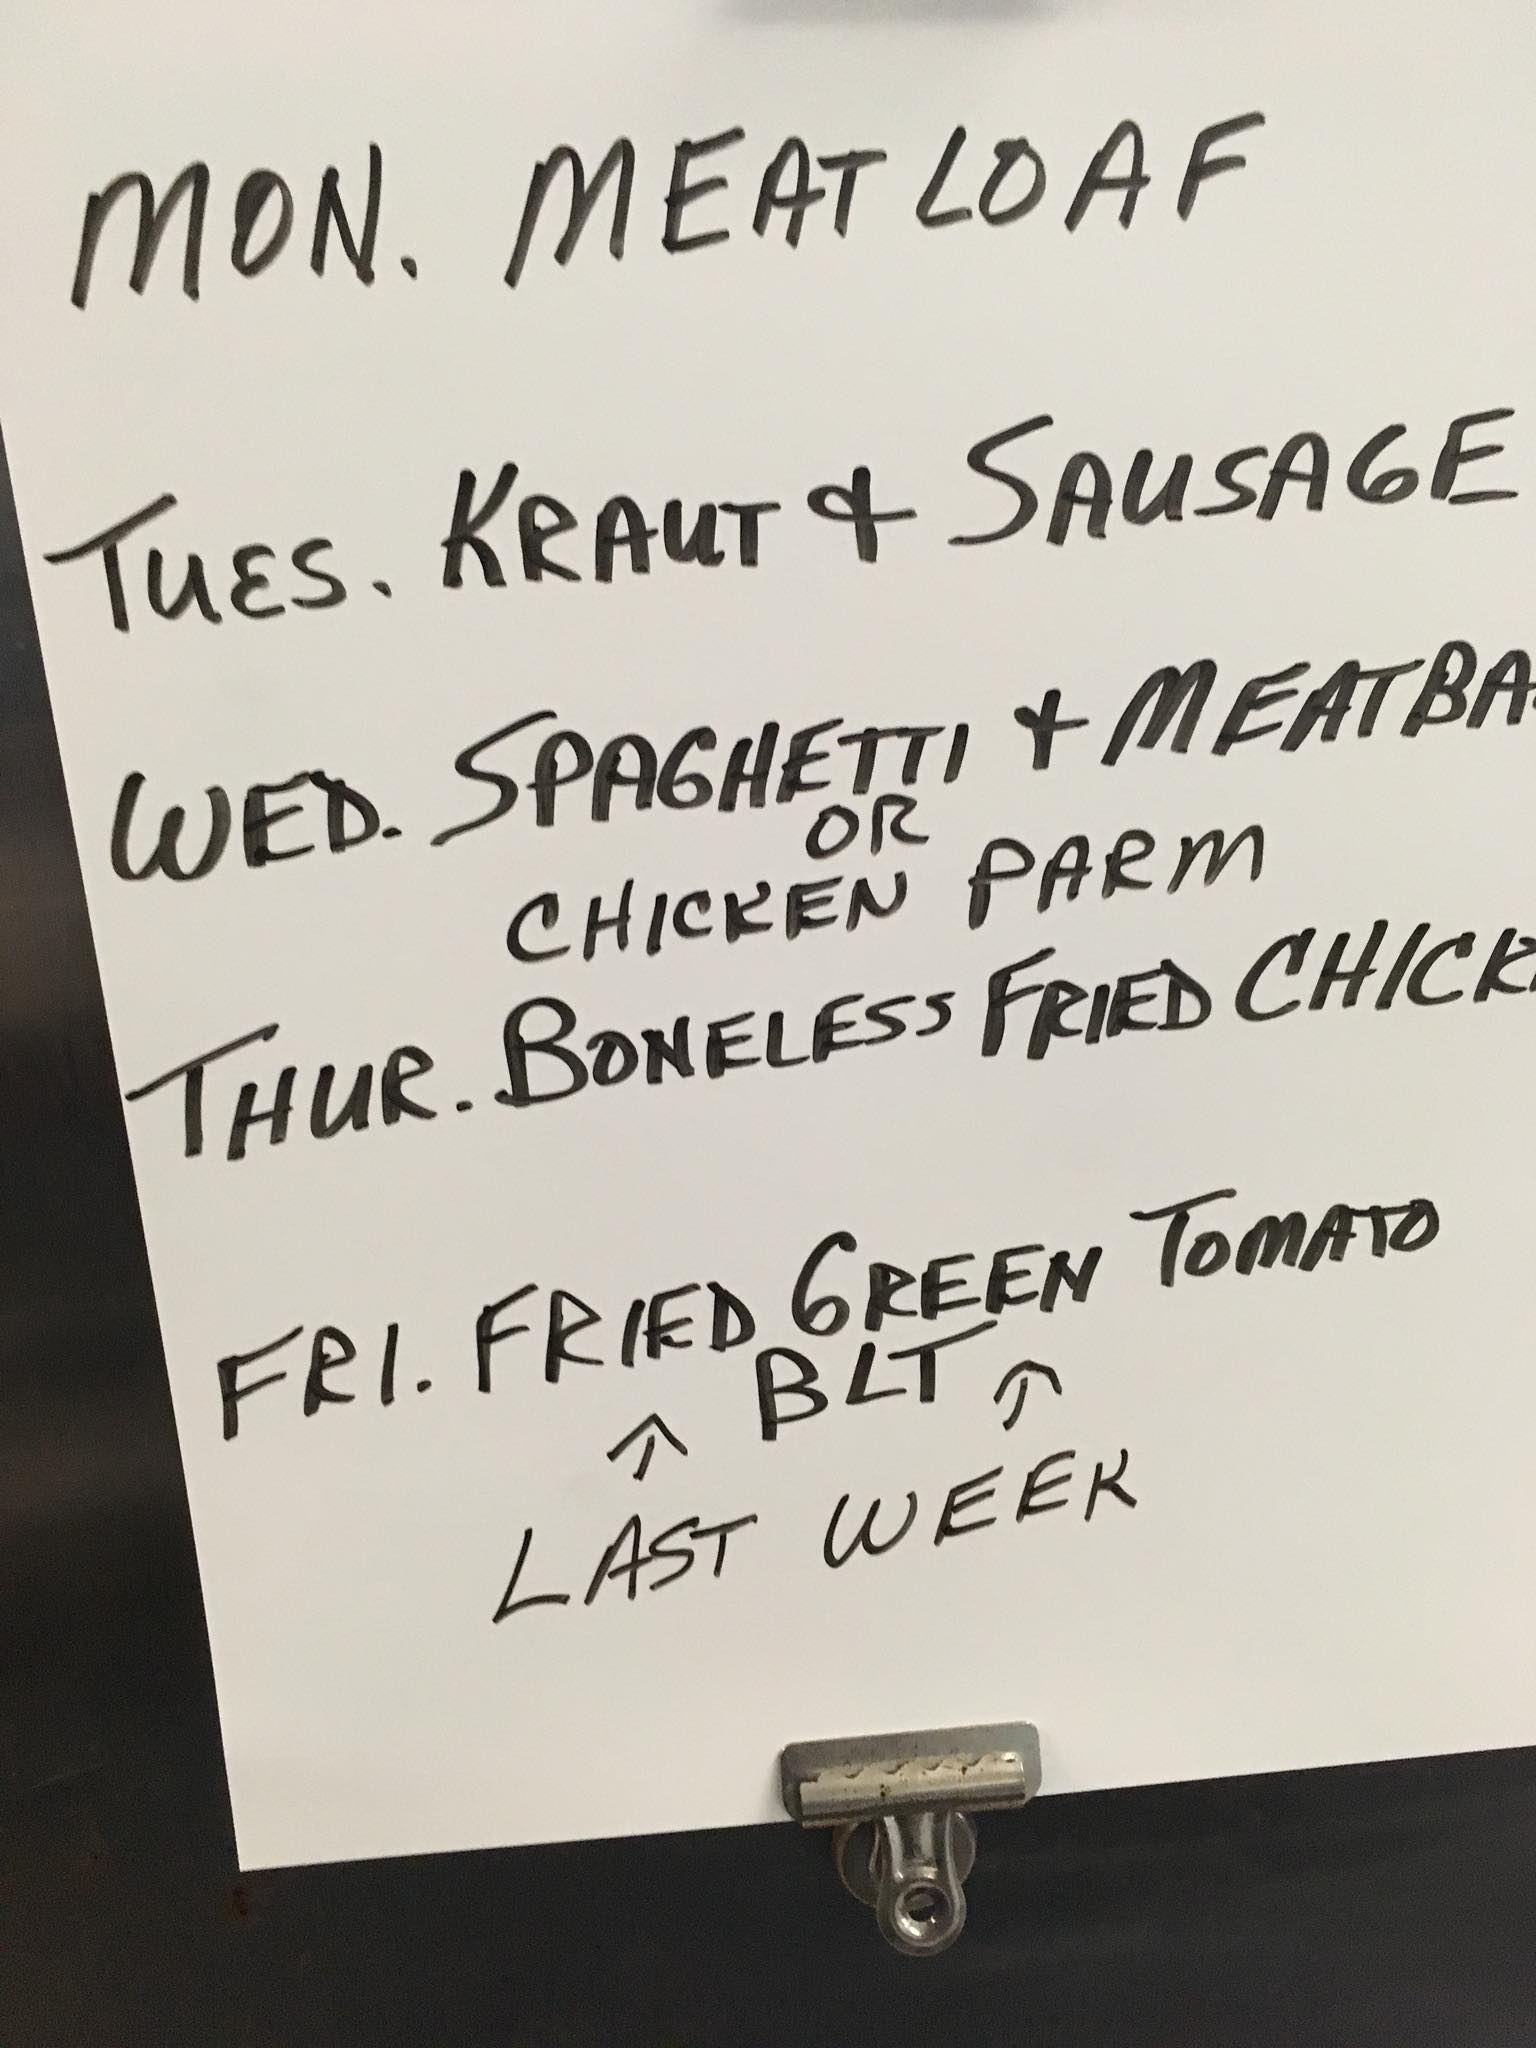 MON. MEATLOAF
TUES. KRAUT & SAUSAGE
WED. SPAGHETTI & MEATBA
OR
CHICKEN PARM
THUR. BONELESS FRIED CHICK
FRI. FRIED GREEN TOMATO
BLT
↑ ↑
LAST WEEK